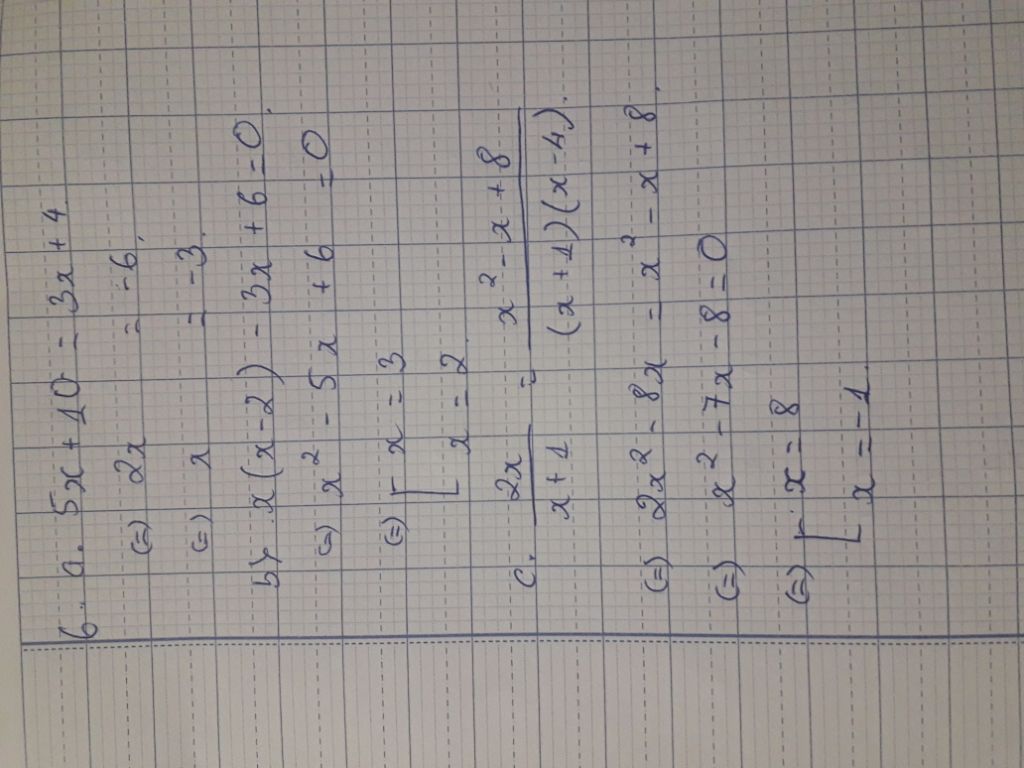 6. a. 5x + 10 = 3x + 4
(=) 2x = -6.
(=) x = -3.
b) x(x-2) - 3x + 6 = 0.
(=) x² - 5x + 6 = 0
(=) [ x = 3
[ x = 2.
c. 2x / x+1 = x² - x + 8 / (x+1)(x-4).
(=) 2x² - 8x = x² - x + 8.
(=) x² - 7x - 8 = 0
(=) [ x = 8
[ x = -1.